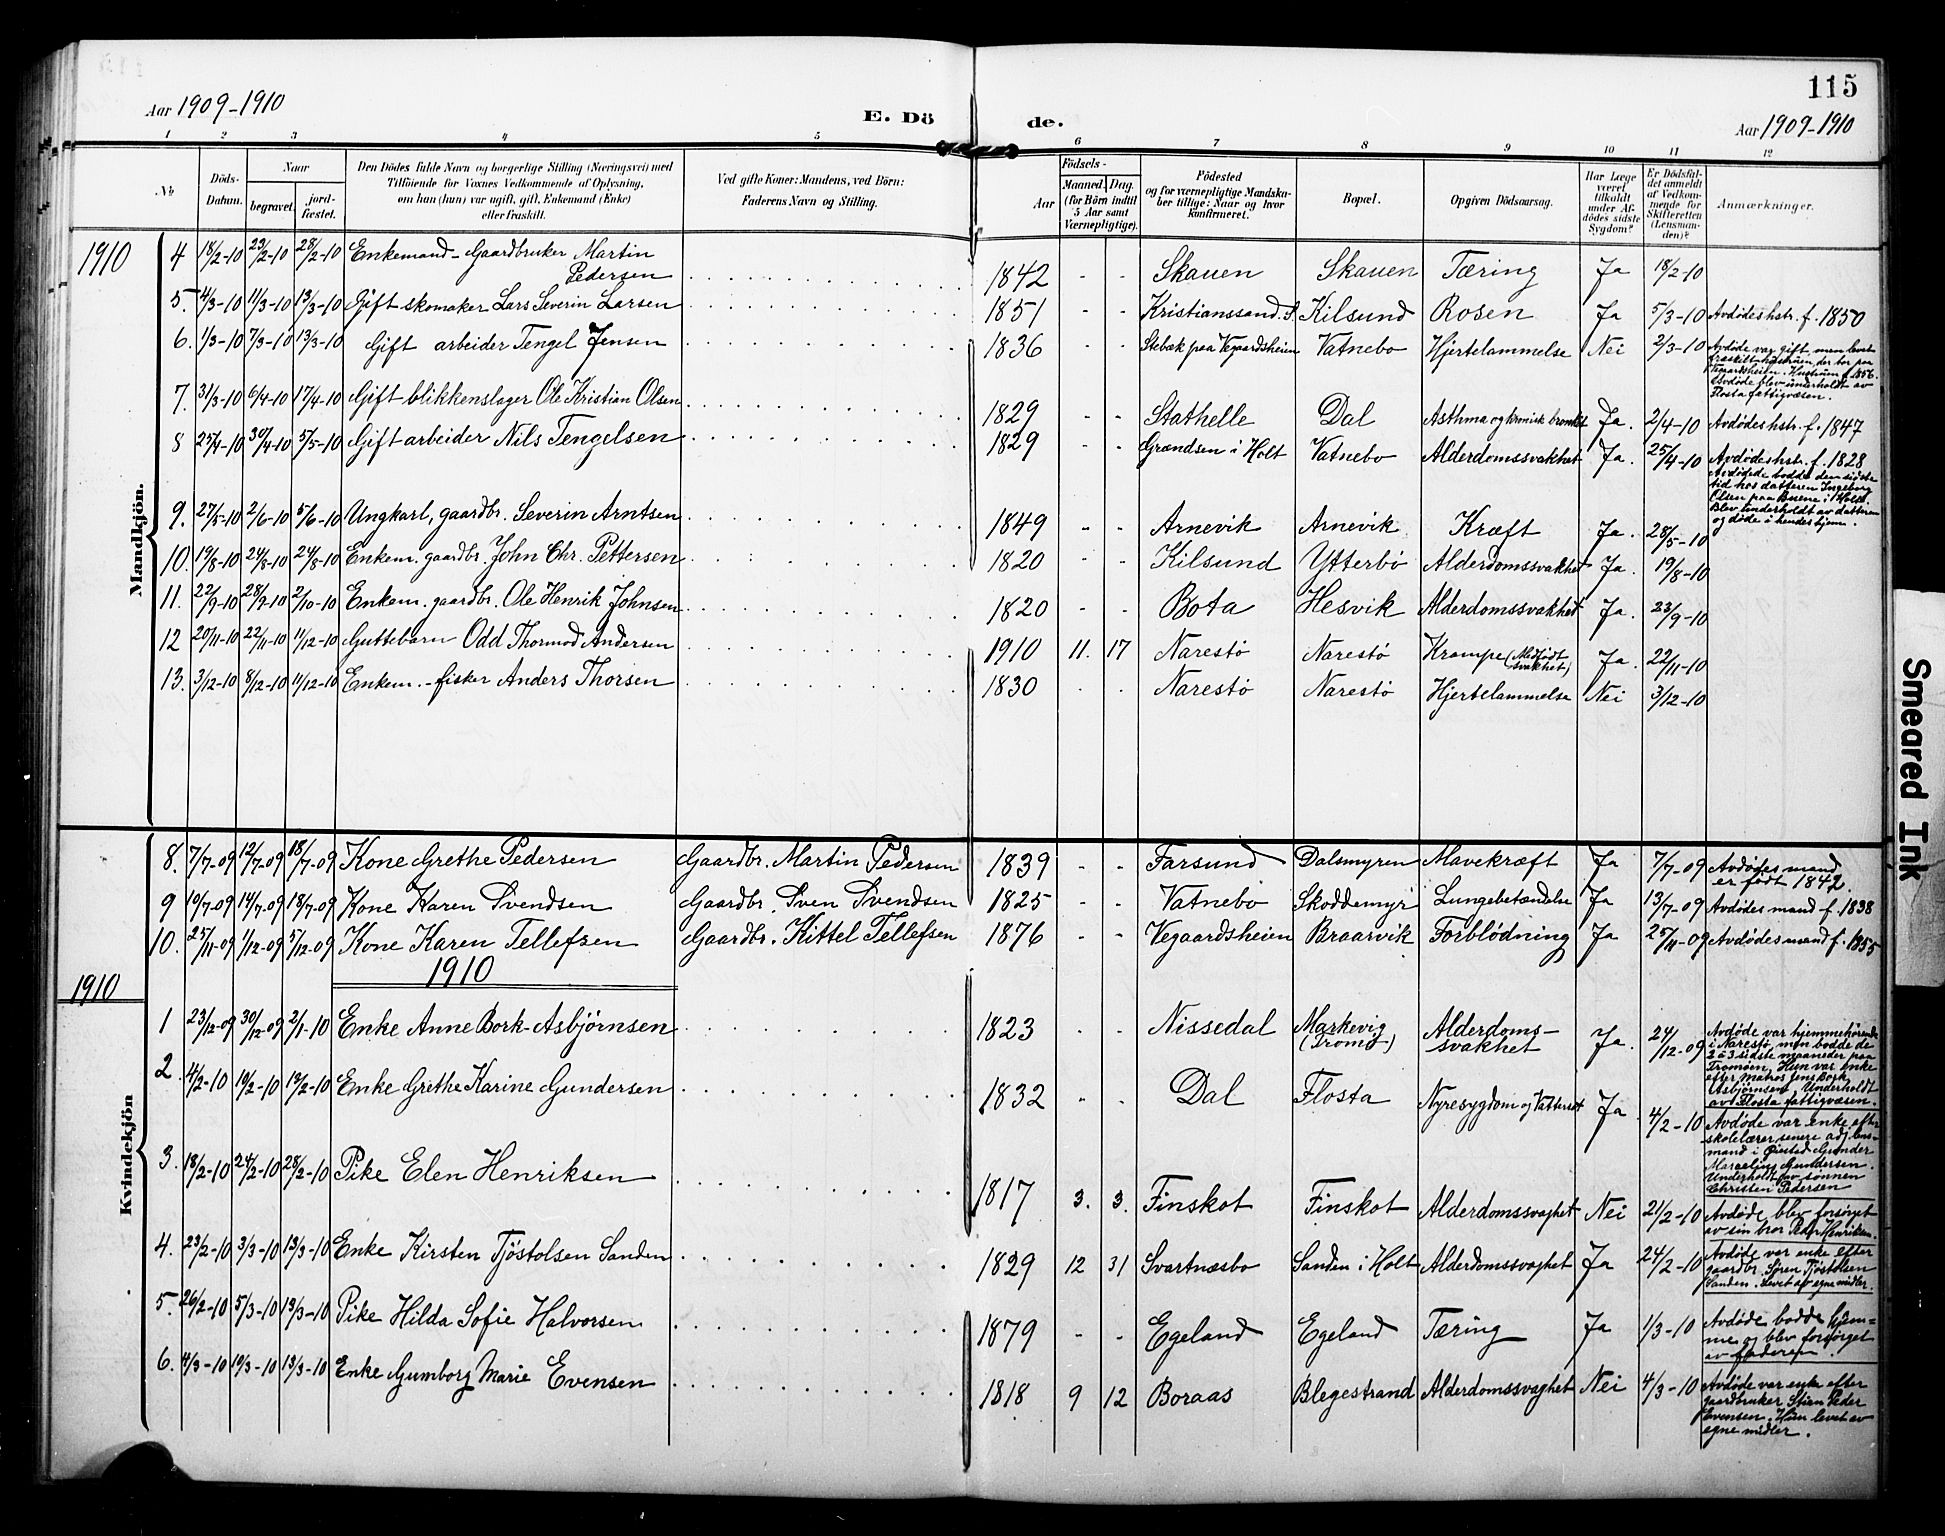 115
Aar 1909-1910
E. Dö
de.
Aar 1909-1910
1 2 3 4 5 6 7 8 9 10 11 12
No
Döds-
Datum.
Naar
begravet.
jord-
fæstet.
Den Dödes fulde Navn og borgerlige Stilling (Næringsvei) med
Tilföiende for Voxnes Vedkommende af Oplysning,
om han (hun) var ugift, gift, Enkemand (Enke)
eller fraskilt.
Ved gifte Koner: Mandens, ved Börn:
Faderens Navn og Stilling.
Födsels-
Aar
Maaned. Dag.
(for Börn indtil
5 Aar samt
Værnepligtige).
Födested
og for værnepligtige Mandska-
ber tillige: Naar og hvor
konfirmeret.
Bopæl.
Opgiven Dödsaarsag.
Har Læge
været
tilkaldt
under Af-
dödes sidste
Sygdom?
Er Dödsfal-
det anmeldt
af Vedkom-
mende for
Skifteretten
(Lensman-
den)?
Anmærkninger.
1910
Mandkjön.
4 18/2-10 23/2-10 28/2-10 Enkemand-Gaardbruker Martin
Pedersen 1842 - - Skauen Skauen Tæring Ja 18/2-10
5. 4/3-10 11/3-10 13/3-10 Gift skomaker Lars Severin Larsen 1851 - - Kristianssand.S. Kilsund Rosen Ja 5/3-10 Avdødes hstr. f. 1850
6. 1/3-10 7/3-10 13/3-10 Gift arbeider Tengel Jensen 1836 - - Stebæk paa Vegaardsheien Vatnebo Hjertelammelse Nei 2/3-10 Avdøde var gift, men levet
fraskilt hustruen, der bor paa
Vegaardsheien. Hustruen f. 1856.
Avdøde blev underholdt av
Flosta fattigvæsen.
7. 31/3-10 6/4-10 17/4-10 Gift blikkenslager Ole Kristian Olsen 1829 - - Stathelle Dal Asthma og kronisk bronkit Ja. 2/4-10 Avdødes hstr. f. 1847
8 25/4-10 30/4-10 5/5-10 Gift arbeider Nils Tengelsen 1829 - - Grændsen i Holt Vatnebo Alderdomssvakhet Ja. 25/4-10 Avdødes hstr. f. 1828
Avdøde bodde den sidste
tid hos datteren Ingeborg
Olsen paa Buene i Holt.
Blev underholdt av datteren
og døde i hendes hjem.
9. 27/5-10 2/6-10 5/6-10 Ungkarl, gaardbr. Severin Arntsen 1849 - - Arnevik Arnevik Kræft Ja. 28/5-10
10. 19/8-10 24/8-10 24/8-10 Enkem. gaardbr. John Chr. Pettersen 1820 - - Kilsund Ytterbø Alderdomssvakhet Ja. 19/8-10
11. 22/9-10 28/9-10 2/10-10 Enkem. gaardbr. Ole Henrik Johnsen 1820 - - Bota Hesvik Alderdomssvakhet Ja. 23/9-10
12 20/11-10 22/11-10 11/12-10 Guttebarn Odd Thormod Andersen 1910 11. 17 Narestø Narestø Krampe (Medfødt
svakhet) Ja. 22/11-10
13. 3/12-10 8/12-10 11/12-10 Enkem.-fisker Anders Thorsen 1830 - - Narestø Narestø Hjertelammelse Nei 3/12-10
Kvindekjön
8. 7/7-09 12/7-09 18/7-09 Kone Grethe Pedersen Gaardbr. Martin Pedersen 1839 - - Farsund Dalsmyren Mavekræft Ja 7/7-09 Avdødes mand
er født 1842.
9 10/7-09 14/7-09 18/7-09 Kone Karen Svendsen Gaardbr. Sven Svendsen 1825 - - Vatnebo Skoddemyr Lungebetændelse Ja 13/7-09 Avdødes mand f. 1838
10. 25/11-09 1/12-09 5/12-09 Kone Karen Tellefsen Gaardbr. Kittel Tellefsen 1876 - - Vegaardsheien Braarvik Forblödning Ja 25/11-09 Avdødes mand f. 1855
1910
1910
1 23/12-09 30/12-09 2/1-10 Enke Anne Bork-Asbjørnsen 1823 - - Nissedal Markevig
(Tromø) Alderdoms-
svakhet Ja. 24/12-09 Avdøde var hjemmehörende
i Narestø, men bodde de
2 à 3 sidste maaneder paa
Tromøen. Hun var enke
efter matros Jens Bork
Asbjørnsen. Underholdt
av Flosta fattigvæsen.
2. 4/2-10 10/2-10 10/2-10 Enke Grethe Karine Gundersen 1832 - - Dal Flosta Nyresygdom og Vattersot Ja 4/2-10 Avdøde var enke efter
skolelærer senere adj. lens-
mand i Øiestad Gunder
Marcelius Gundersen.
Underholdt av sønnen
Christen Pedersen
3. 18/2-10 24/2-10 28/2-10 Pike Elen Henriksen 1817 3. 3. Finskot Finskot Alderdomssvaghet Nei 21/2-10 Avdøde blev forsörget
av sin bror Peder Henriksen.
4. 23/2-10 3/3-10 13/3-10 Enke Kirsten Tjöstolsen Sanden 1829 12 31 Svartnæsbo Sanden i Holt Alderdomssvaghet Ja 24/2-10 Avdøde var enke efter
gaardbr. Søren Tjöstolsen
Sanden. Levet av egne midler.
5. 26/2-10 5/3-10 13/3-10 Pike Hilda Sofie Halvorsen 1879 - - Egeland Egeland Tæring Ja 1/3-10 Avdøde bodde hjem-
me og blev forsörget
av faderen.
6. 4/3-10 10/3-10 13/3-10 Enke Gumborg Marie Evensen 1818 9 12 Boraas Blegestrand Alderdomssvaghet Nei 4/3-10 Avdøde var enke efter
gaardbruker Stien Peder
Evensen. Hun levet av
egne midler.
Smeared Ink